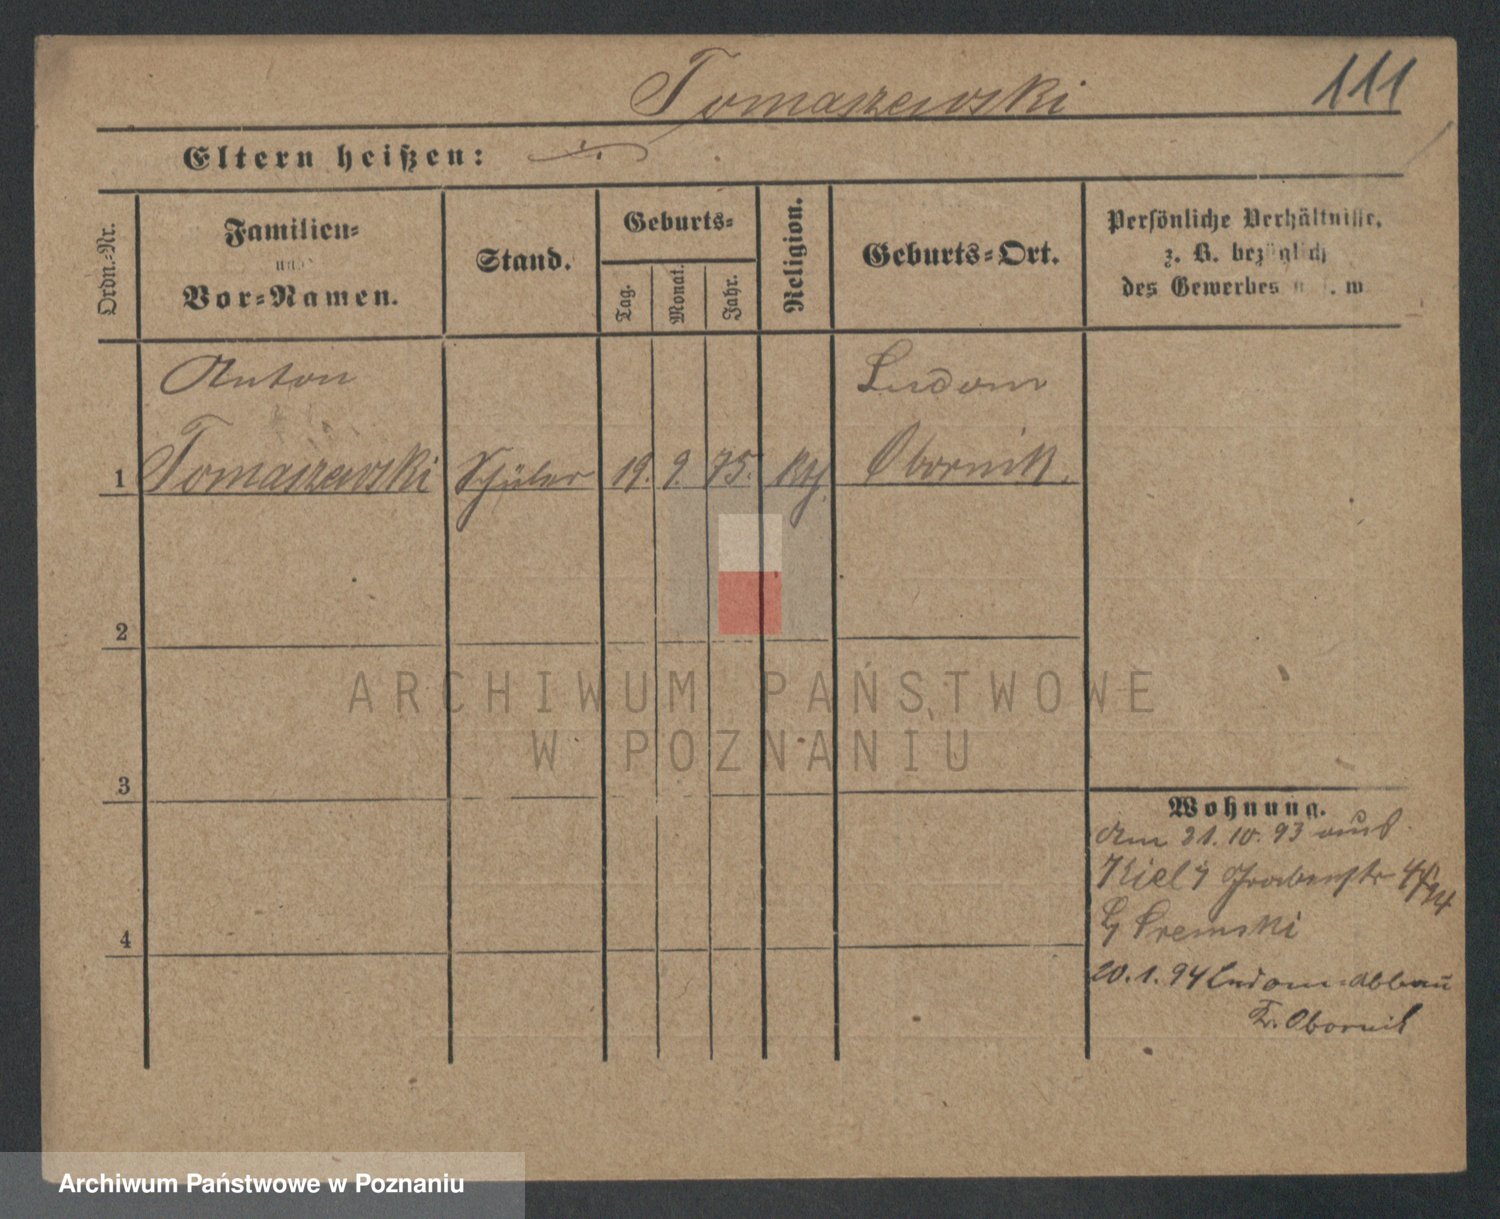 Tomaszewski
111
Eltern heißen: ./.
Ordn.-Nr.
Familien-
und
Vor-Namen.
Stand.
Geburts-
Tag.
Monat.
Jahr.
Religion.
Geburts-Ort.
Persönliche Verhältnisse,
z. B. bezüglich
des Gewerbes u. s. w.
Anton
Ludom
1 Tomaszewski Schüler 19. 9. 75. kth. Obornik.
2
3
4
Wohnung.
Am 21. 10. 93 aus
Kiel Grabenstr
Sremski
20. 1. 94 Ludom-Abbau
Obornik
ARCHIWUM PAŃSTWOWE
W POZNANIU
Archiwum Państwowe w Poznaniu